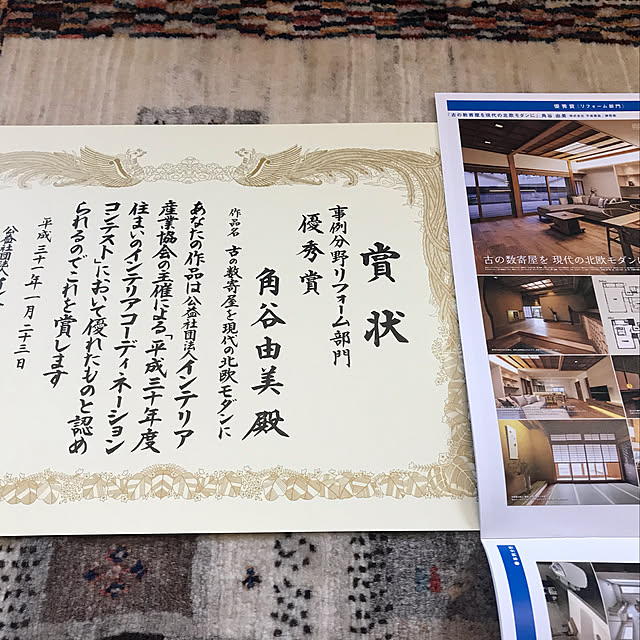 賞状
事例分野リフォーム部門
優秀賞
角谷由美殿
作品名 古の数寄屋を現代の北欧モダンに
あなたの作品は公益社団法人インテリア
産業協会の主催による「平成三十年度
住まいのインテリアコーディネーション
コンテスト」において優れたものと認め
られるのでこれを賞します
平成三十一年一月二十三日
公益社団法人イン
優秀賞［リフォーム部門］
「古の数寄屋を現代の北欧モダンに」角谷 由美
古の数寄屋を 現代の北欧モダンに